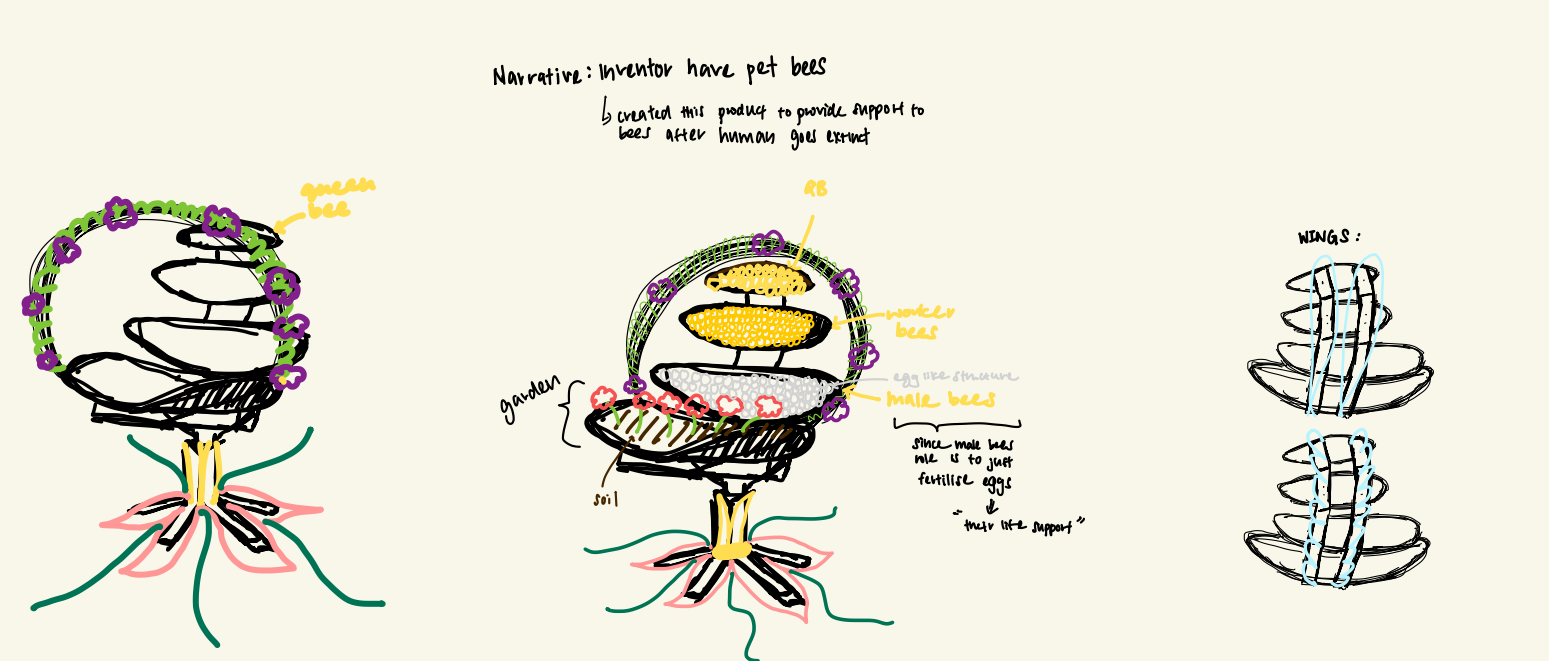 Narrative: Inventor have pet bees
↳ created this product to provide support to
bees after human goes extinct
queen
bee
QB
WINGS:
worker
bees
egg like structure
male bees
garden
since male bees
role is to just
fertilise eggs
↓
"their life support"
soil